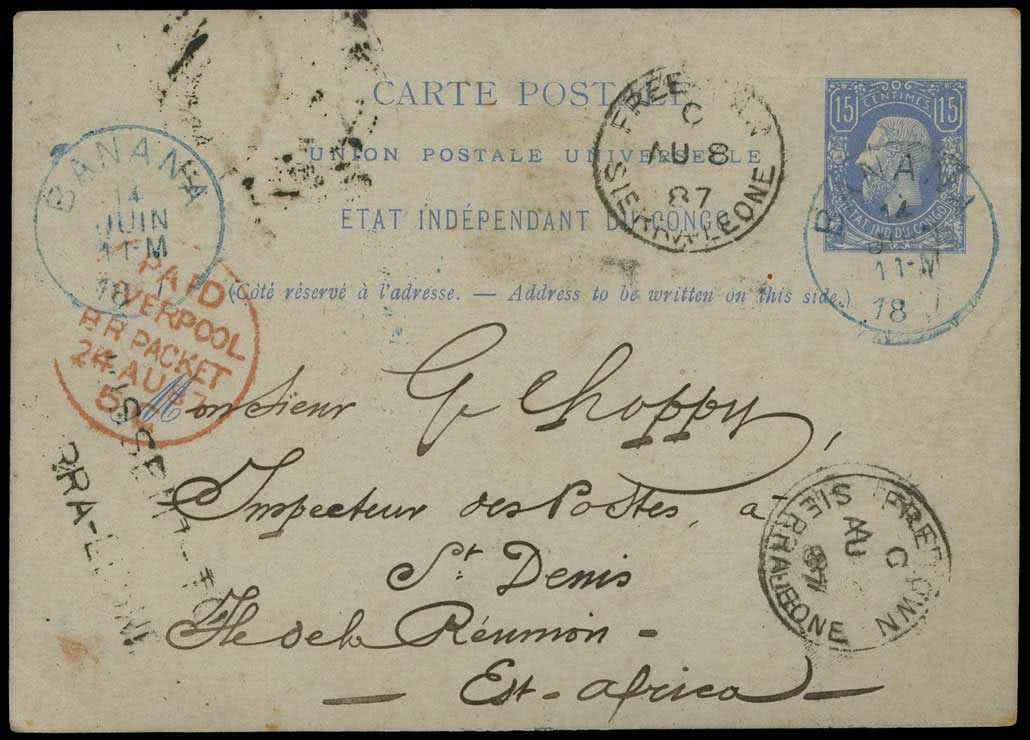 CARTE POSTALE
UNION POSTALE UNIVERSELLE
ETAT INDÉPENDANT DU CONGO
(Côté réservé à l'adresse. — Address to be written on this side.)
15 CENTIMES 15
ETAT IND. DU CONGO
BANANA
14
JUIN
11-M
18
BANANA
14
11-M
18
FREE
C
AU 8
87
SIERRA-LEONE
PAID
LIVERPOOL
BR PACKET
24 AU 87
Monsieur G Choppy,
Inspecteur des Postes, à
St Denis
Ile de la Réunion -
— Est-Africa —
FREETOWN
C
AU
87
SIERRA LEONE